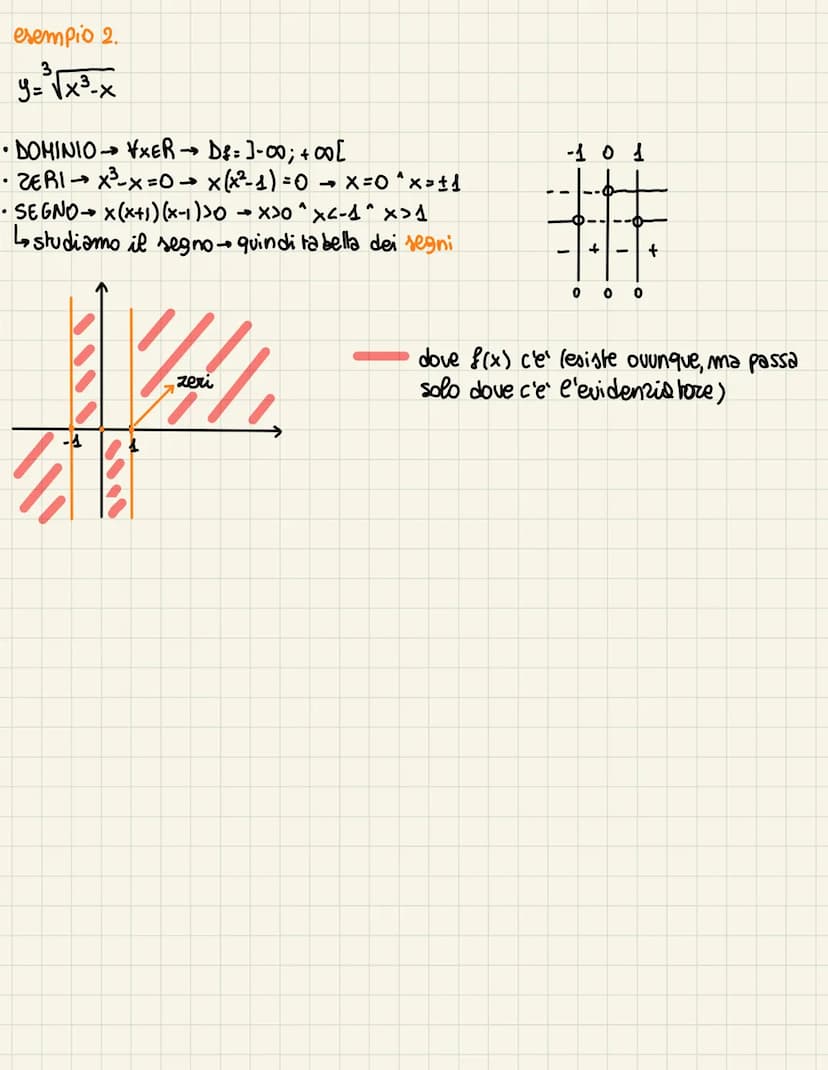 esempio 2.
y=³√x³-x
• DOMINIO → ∀x∈R → Df=]-∞;+∞[
• ZERI → x³-x=0 → x(x²-1)=0 → x=0 ^ x=±1
• SEGNO → x(x+1)(x-1)>0 → x>0 ^ x<-1 ^ x>1
↳ studiamo il segno → quindi tabella dei segni
-1 0 1
- + - +
0 0 0
zeri
-1 1
dove f(x) c'e' (esiste ovunque, ma passa
solo dove c'e' l'evidenziatore)